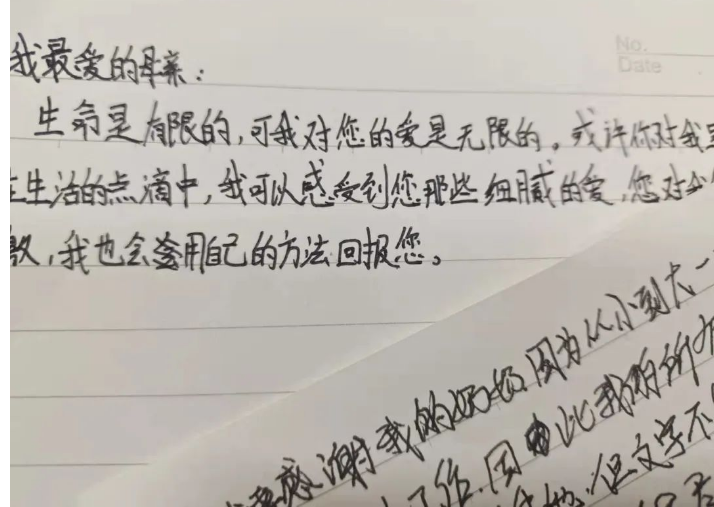 No.
Date
我最爱的母亲:
生命是有限的,可我对您的爱是无限的。或许你对我
生活的点滴中,我可以感受到您那些细腻的爕,您对
,我也会用自己的方法回报您。
感谢我的奶奶,因为从小到大一
作,因此我把所有
但文字不